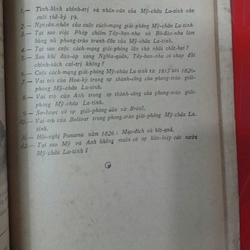 1.— Tình-hình chánh-trị và nhân-văn của Mỹ-châu La-tinh cuối thế-kỷ 19.
2.— Nguyên-nhân của cuộc cách-mạng giải-phóng Mỹ-châu La-tinh.
3.— Tại sao việc Pháp chiếm Tây-ban-nha và Bồ-đào-nha làm bùng nổ phong-trào tranh-đấu của Mỹ-châu La-tinh.
4.— Tại sao cuộc cách-mạng giải-phóng lần thứ nhất thất-bại ?
5.— Sau khi đàn-áp xong Nghĩa-quân, Tây-ban-nha có thay đổi chính-sách cai-trị không ?
6.— Cuộc cách-mạng giải-phóng Mỹ-châu La-tinh từ 1815 tới 1826.
7.— Vai trò của Hoa-kỳ trong sự thành-công của phong-trào giải-phóng Mỹ-châu La-tinh.
8.— Vai trò của Anh trong sự thành-công của phong-trào giải-phóng Mỹ-châu La-tinh.
9.— Sơ-lược về sự giải-phóng dân xứ Brasil.
10.— Vai trò của Bolivar trong phong-trào giải-phóng Mỹ-châu La-tinh.
11.— Hội-nghị Panama năm 1826 : Mục-đích và kết-quả.
12.— Tại sao Mỹ và Anh không muốn có sự liên-hiệp các nước Mỹ-châu La-tinh ?